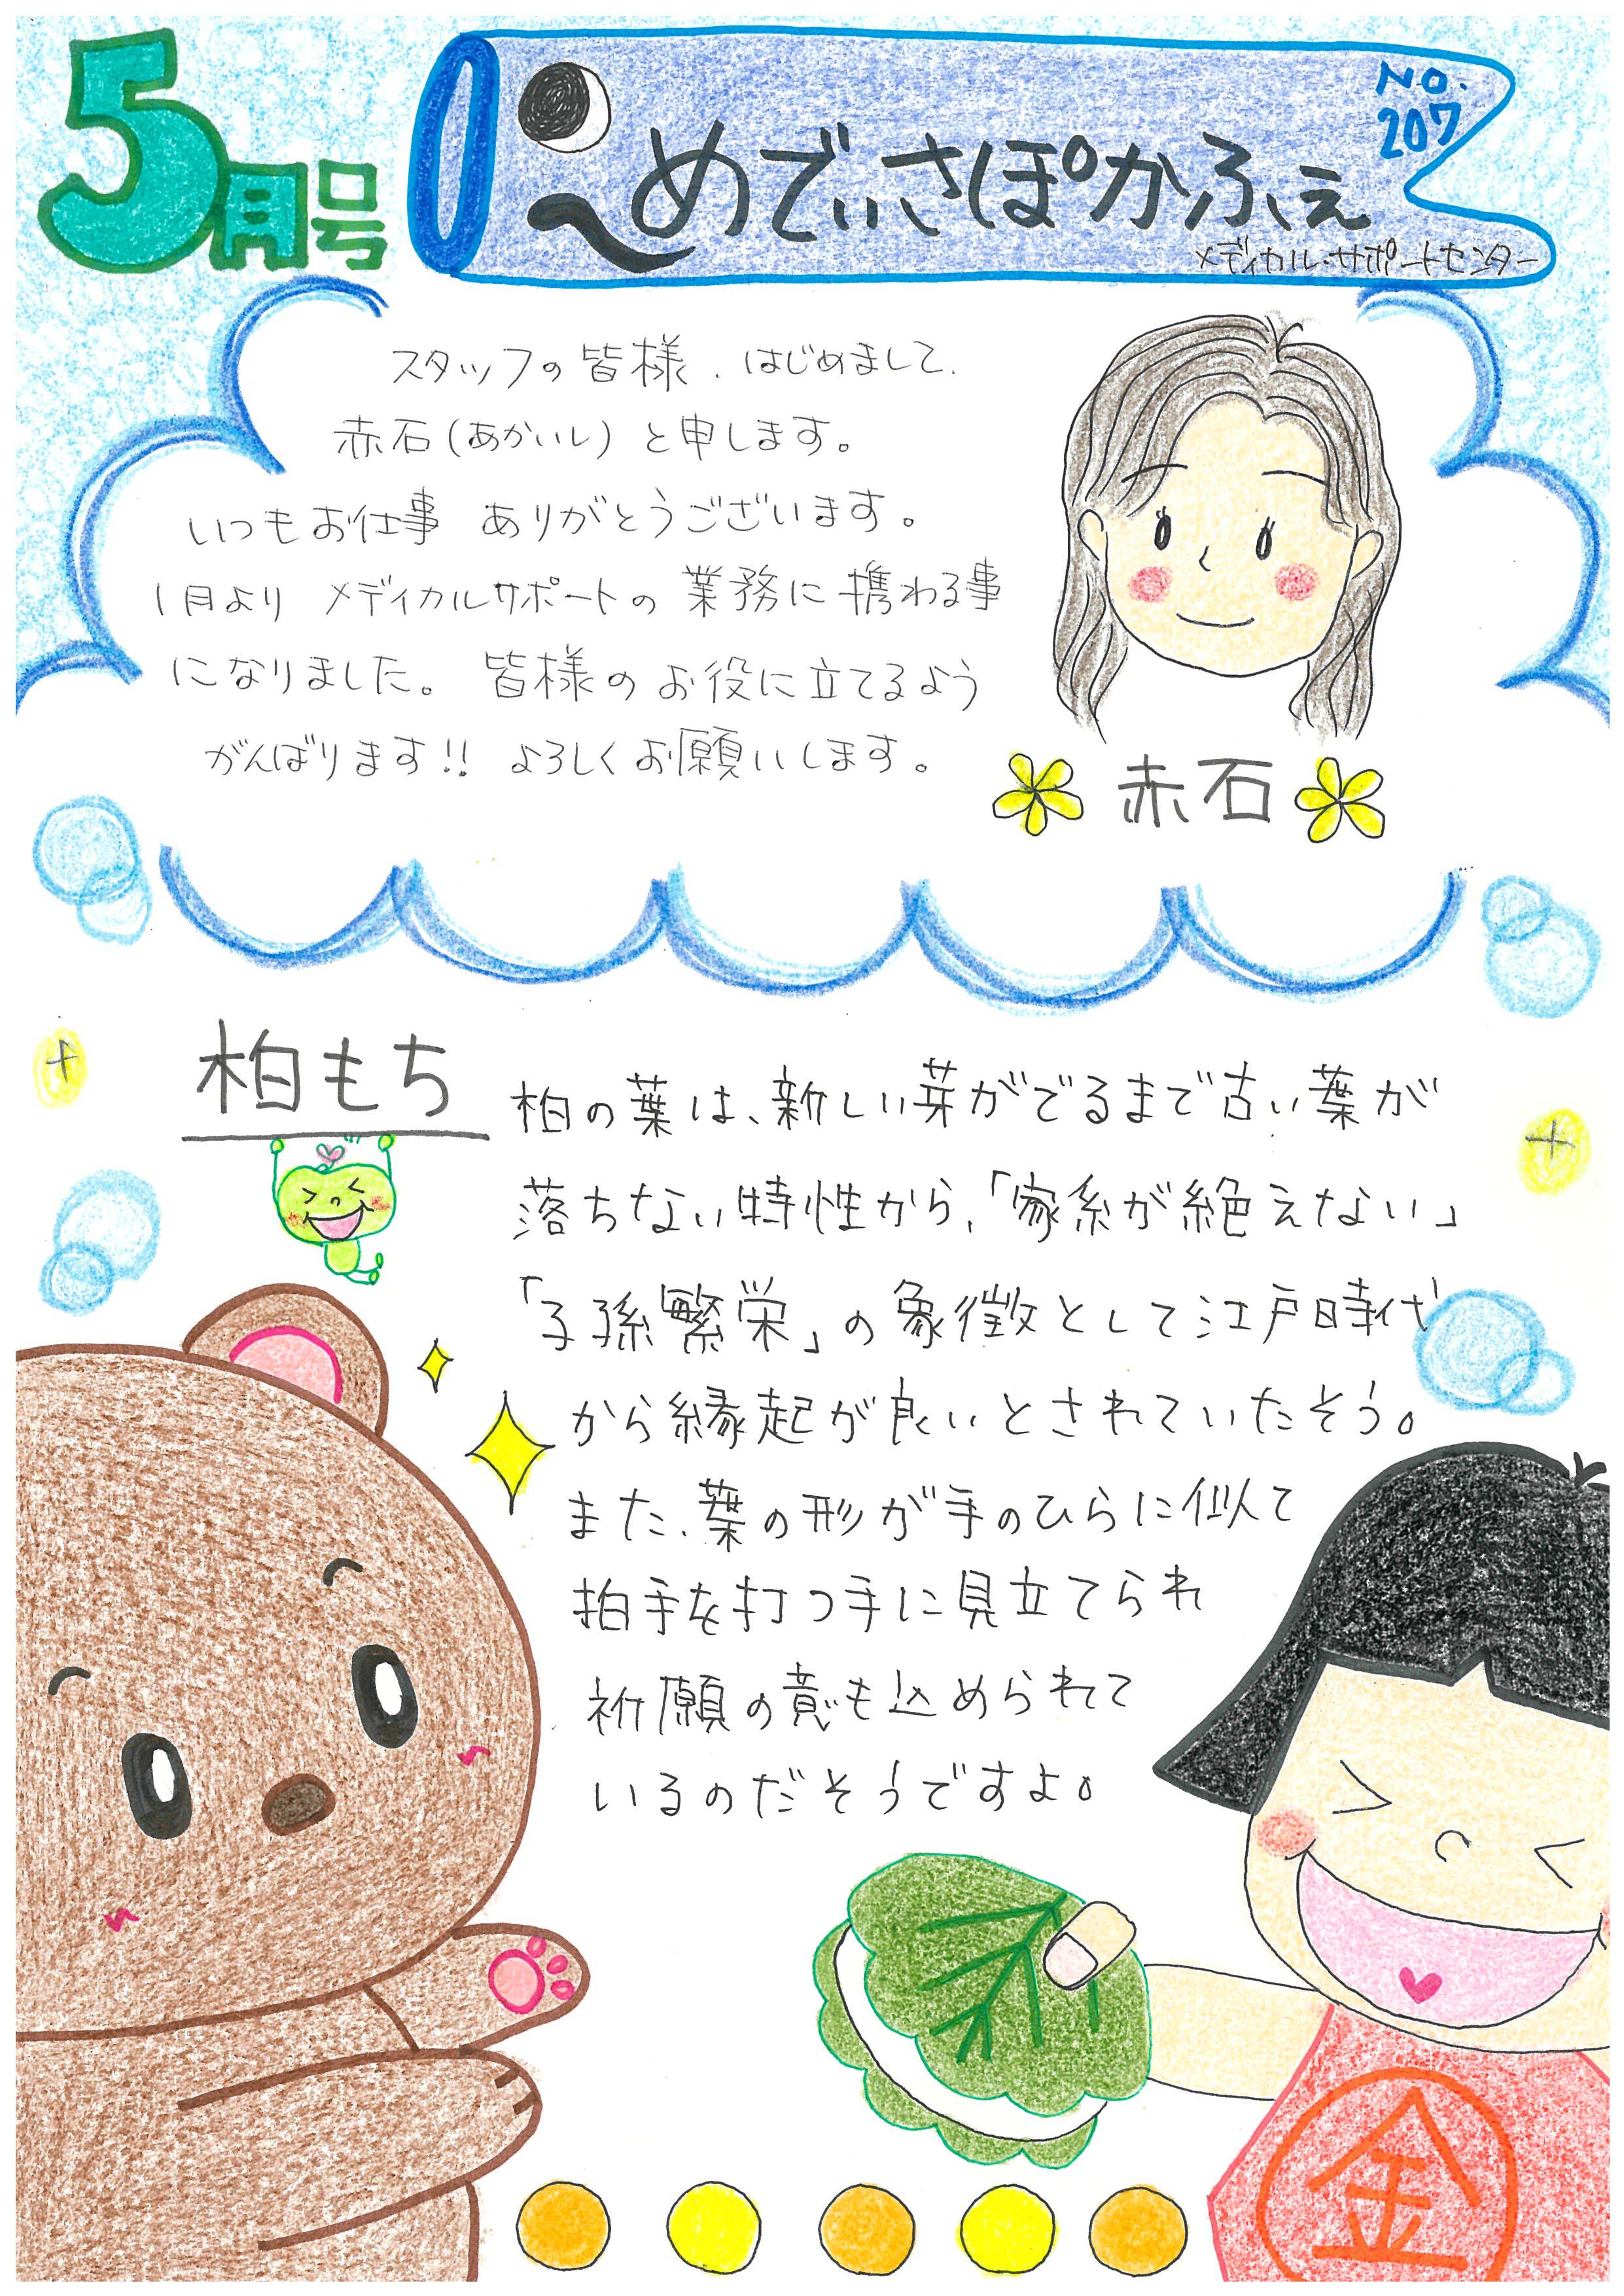 5月号
めでぃさぽかふぇ
No.
207
メディカル・サポートセンター
スタッフの皆様、はじめまして、
赤石(あかいし)と申します。
いつもお仕事 ありがとうございます。
1月より メディカルサポートの 業務に携わる事
になりました。 皆様のお役に立てるよう
がんばります!! よろしくお願いします。
赤石
柏もち
柏の葉は、新しい芽がでるまで古い葉が
落ちない特性から、「家系が絶えない」
「子孫繁栄」の象徴として江戸時代
から縁起が良いとされていたそう。
また、葉の形が手のひらに似て
拍手を打つ手に見立てられ
祈願の意も込められて
いるのだそうですよ。
金